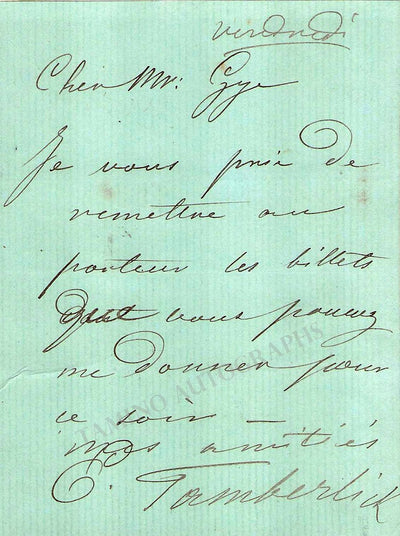 vendredi
Cher Mr: Gye
Je vous prie de
remettre au
porteur les billets
dont vous pouvez
me donner pour
ce soir —
mes amitiés
E. Tamberlick
TAMINO AUTOGRAPHS